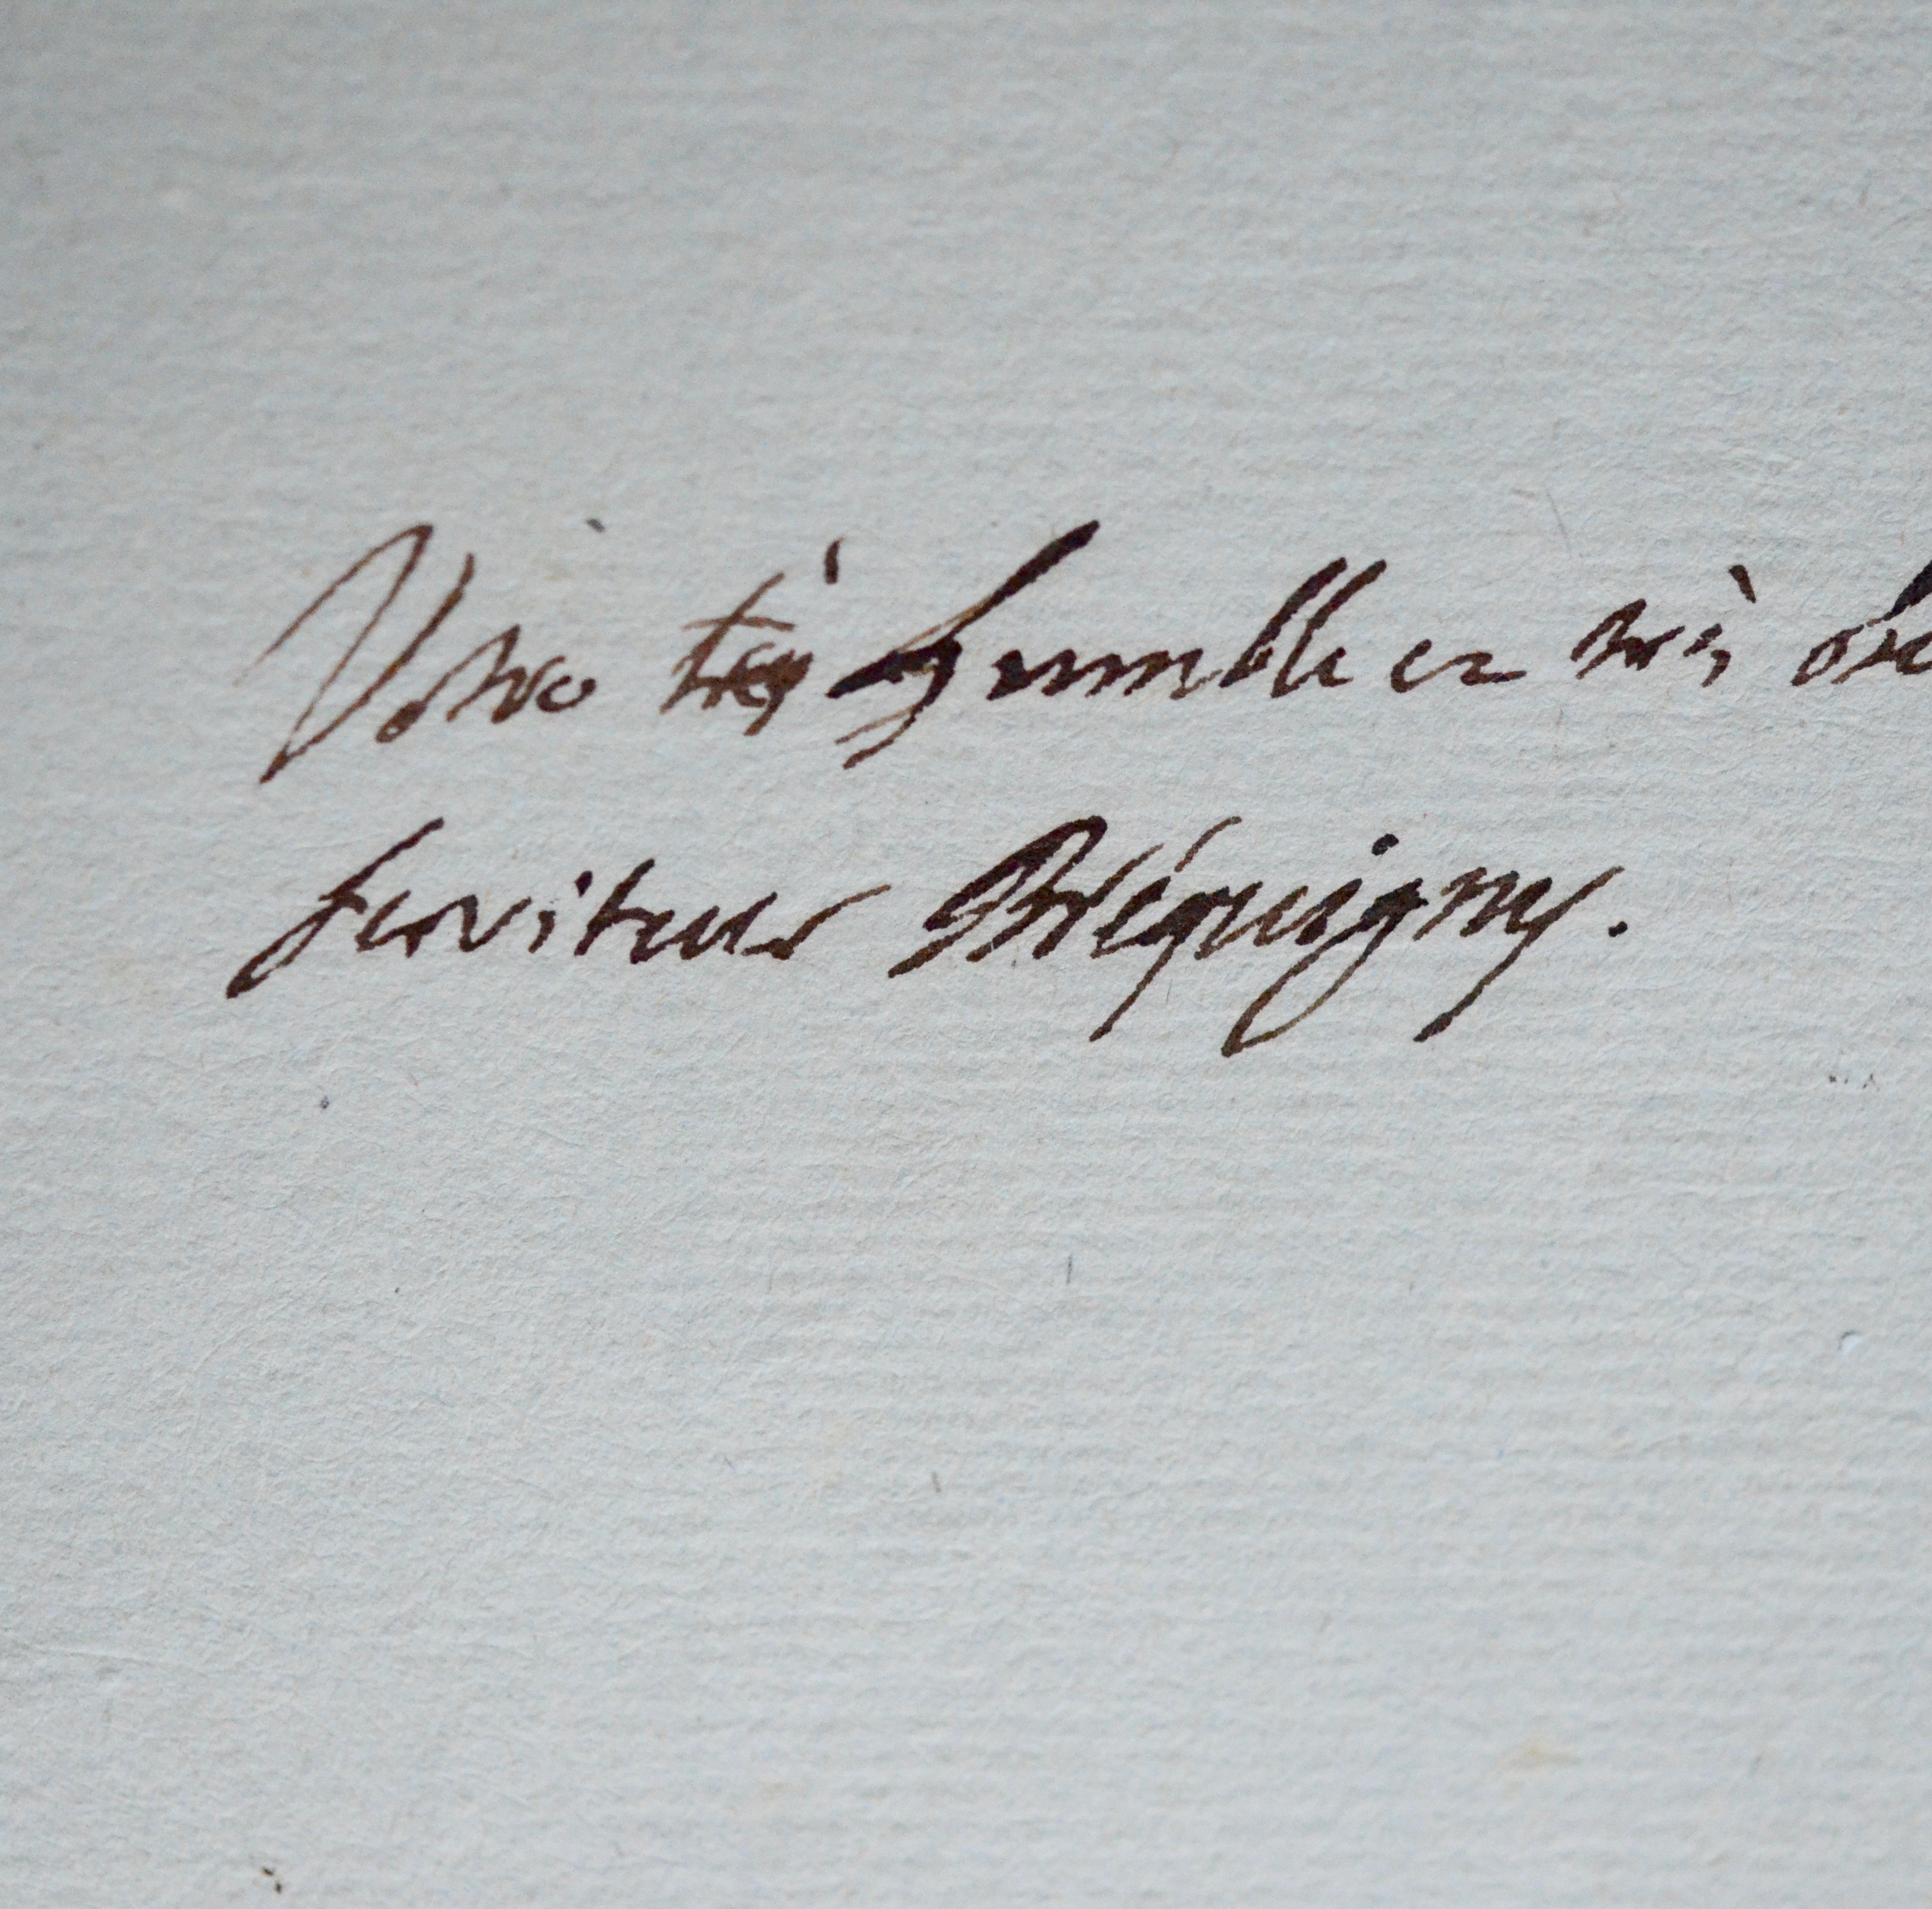 Votre très humble et très obe
serviteur Bréquigny.